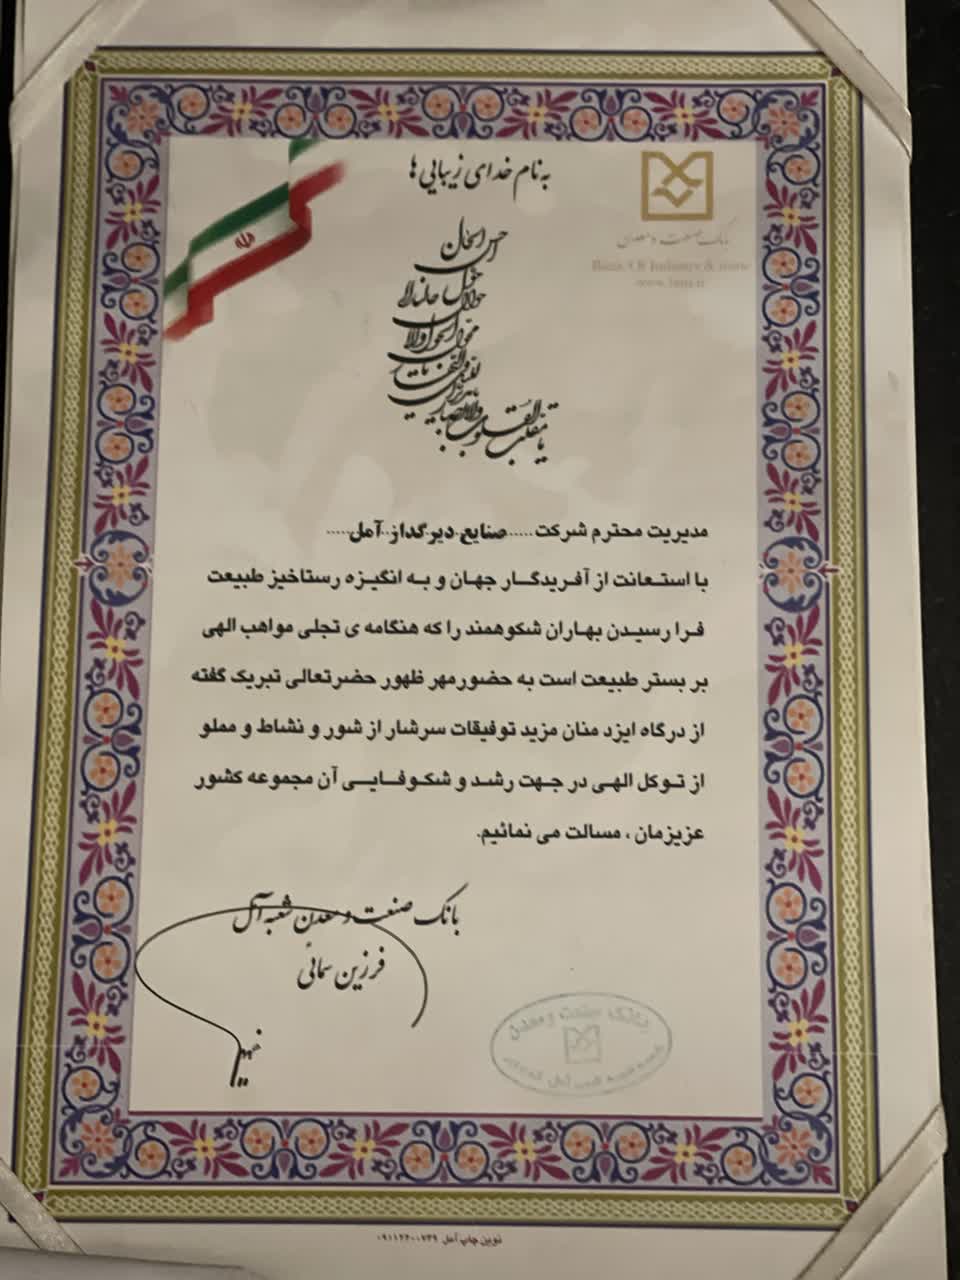 به نام خدای زیبایی ها
بانک صنعت و معدن
Bank Of Industry & mine
www.bim.ir
حسن الحال
حول حالنا الی
محول الحول و الاحوال
یا مدبر اللیل و النهار
یا مقلب القلوب و الابصار
مدیریت محترم شرکت ..... صنایع دیرگداز آمل .....
با استعانت از آفریدگار جهان و به انگیزه رستاخیز طبیعت
فرا رسیدن بهاران شکوهمند را که هنگامه ی تجلی مواهب الهی
بر بستر طبیعت است به حضورمهر ظهور حضرتعالی تبریک گفته
از درگاه ایزد منان مزید توفیقات سرشار از شور و نشاط و مملو
از توکل الهی در جهت رشد و شکوفایی آن مجموعه کشور
عزیزمان ، مسالت می نمائیم.
بانک صنعت و معدن شعبه آمل
فرزین سمائی
بانک صنعت و معدن
نوین چاپ آمل ۰۹۱۱۲۲۰۰۷۳۹